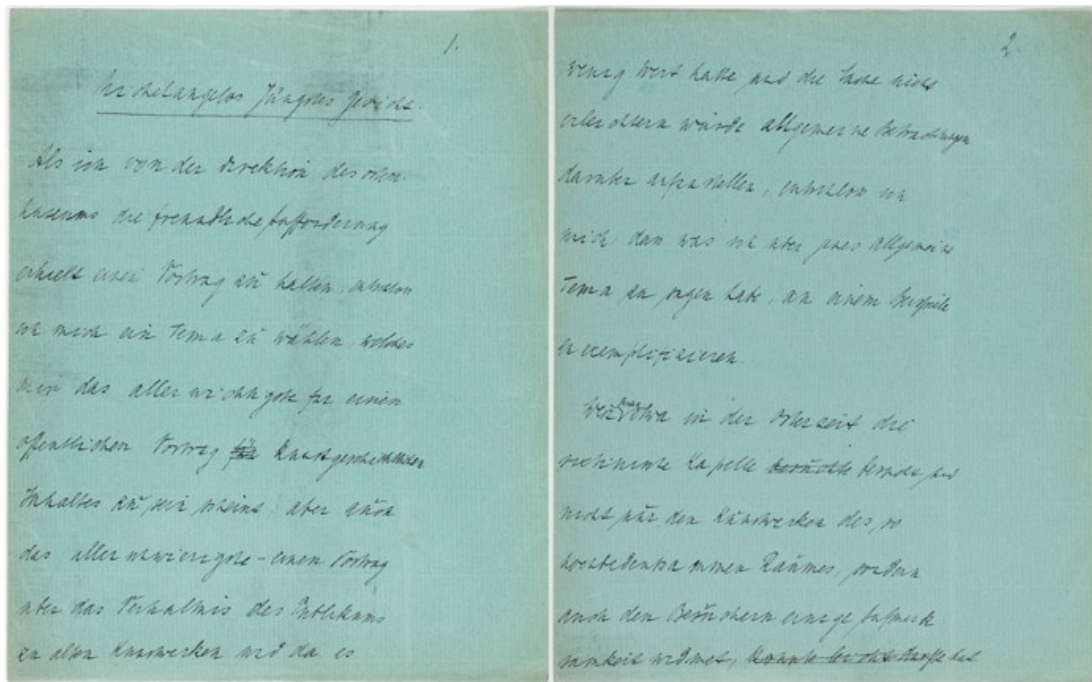 1.
Michelangelos Jüngstes Gericht.
Als ich von der Direktion des öster.
Museums die freundliche Aufforderung
erhielt einen Vortrag zu halten, entschloss
ich mich ein Tema zu wählen, welches
mir das aller wichtigste für einen
öffentlichen Vortrag für kunstgeschichtlichen
Inhaltes zu sein scheint, aber auch
das aller schwierigste - einen Vortrag
über das Verhältnis des Publikums
zu alten Kunstwerken und da es
2.
wenig Wert hätte und die Sache nicht
erleichtern würde allgemeine Betrachtungen
darüber aufzustellen, entschloss ich
mich, dann was ich über jenes allgemeine
Tema zu sagen habe, an einem Beispiele
zu exemplifizieren.
Wenn man etwa in der Osterzeit die
sixtinische Kapelle besucht und
nicht nur den Kunstwerken des so
hochbedeutsamen Raumes, sondern
auch den Besuchern einige Aufmerk
samkeit widmet, könnte leicht dürfte das